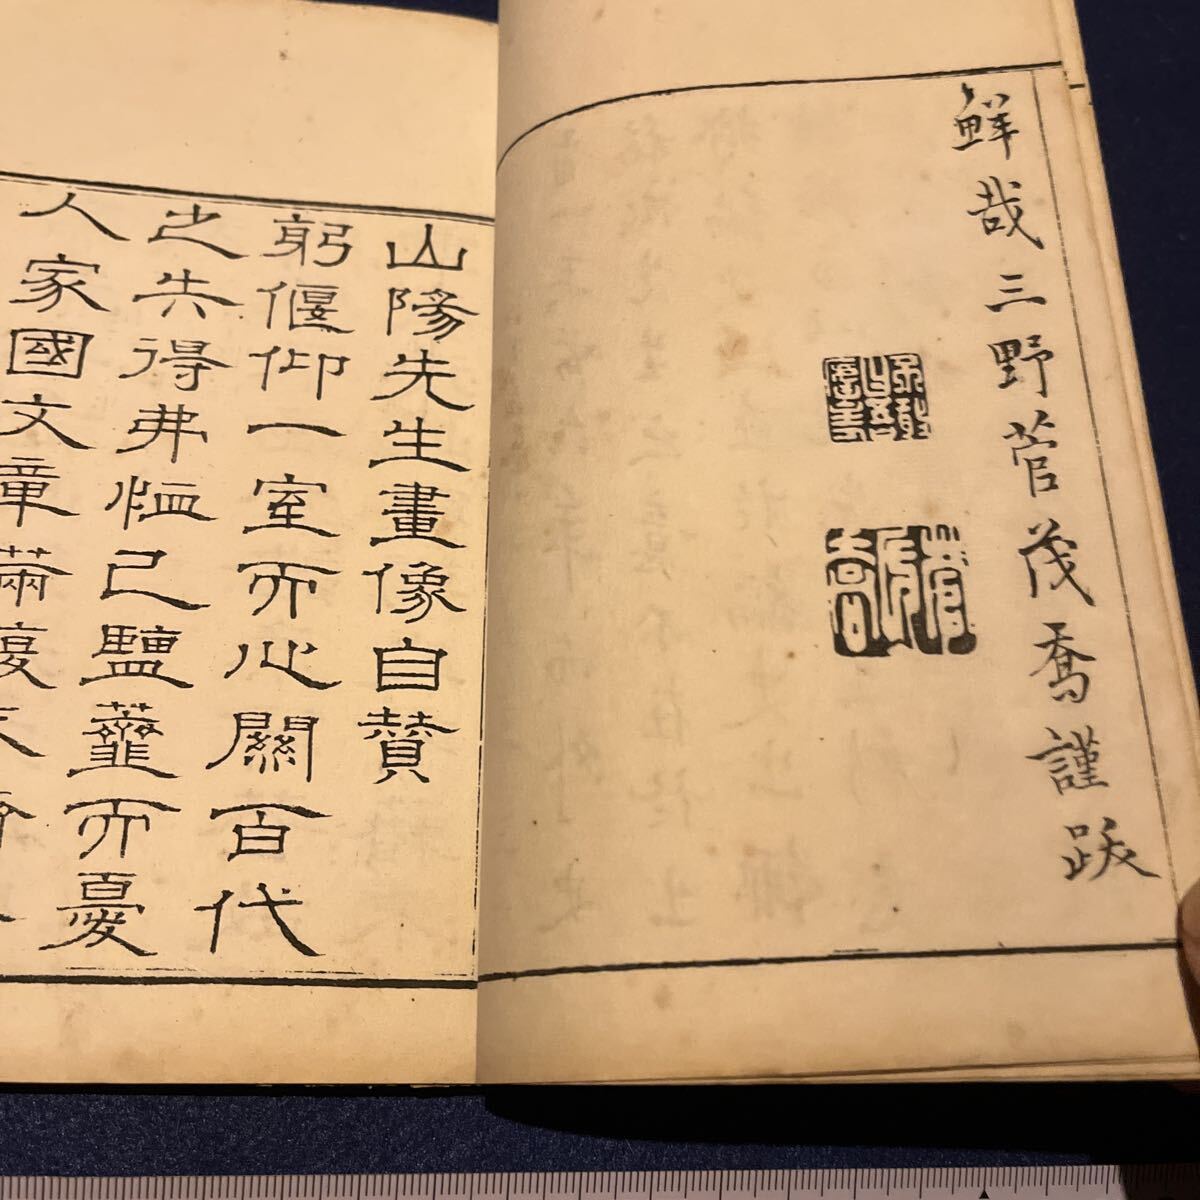 鮮哉三野菅茂喬謹跋
山陽先生畫像自贊
躬偃仰一室而心關百代
之失得弗恤己鹽虀而憂
人家國文章滿腹